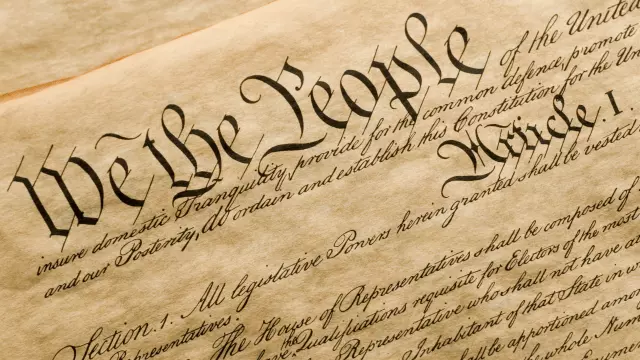 We the People of the United
insure domestic Tranquility, provide for the common defence, promote
and our Posterity, do ordain and establish this Constitution for the Un
Article. I.
Section. 1. All legislative Powers herein granted shall be vested
Representatives.
The House of Representatives shall be composed of
the Qualifications requisite for Electors of the most
Representative who shall not have at
Inhabitant of that State in w
shall be apportioned amon
whole Num